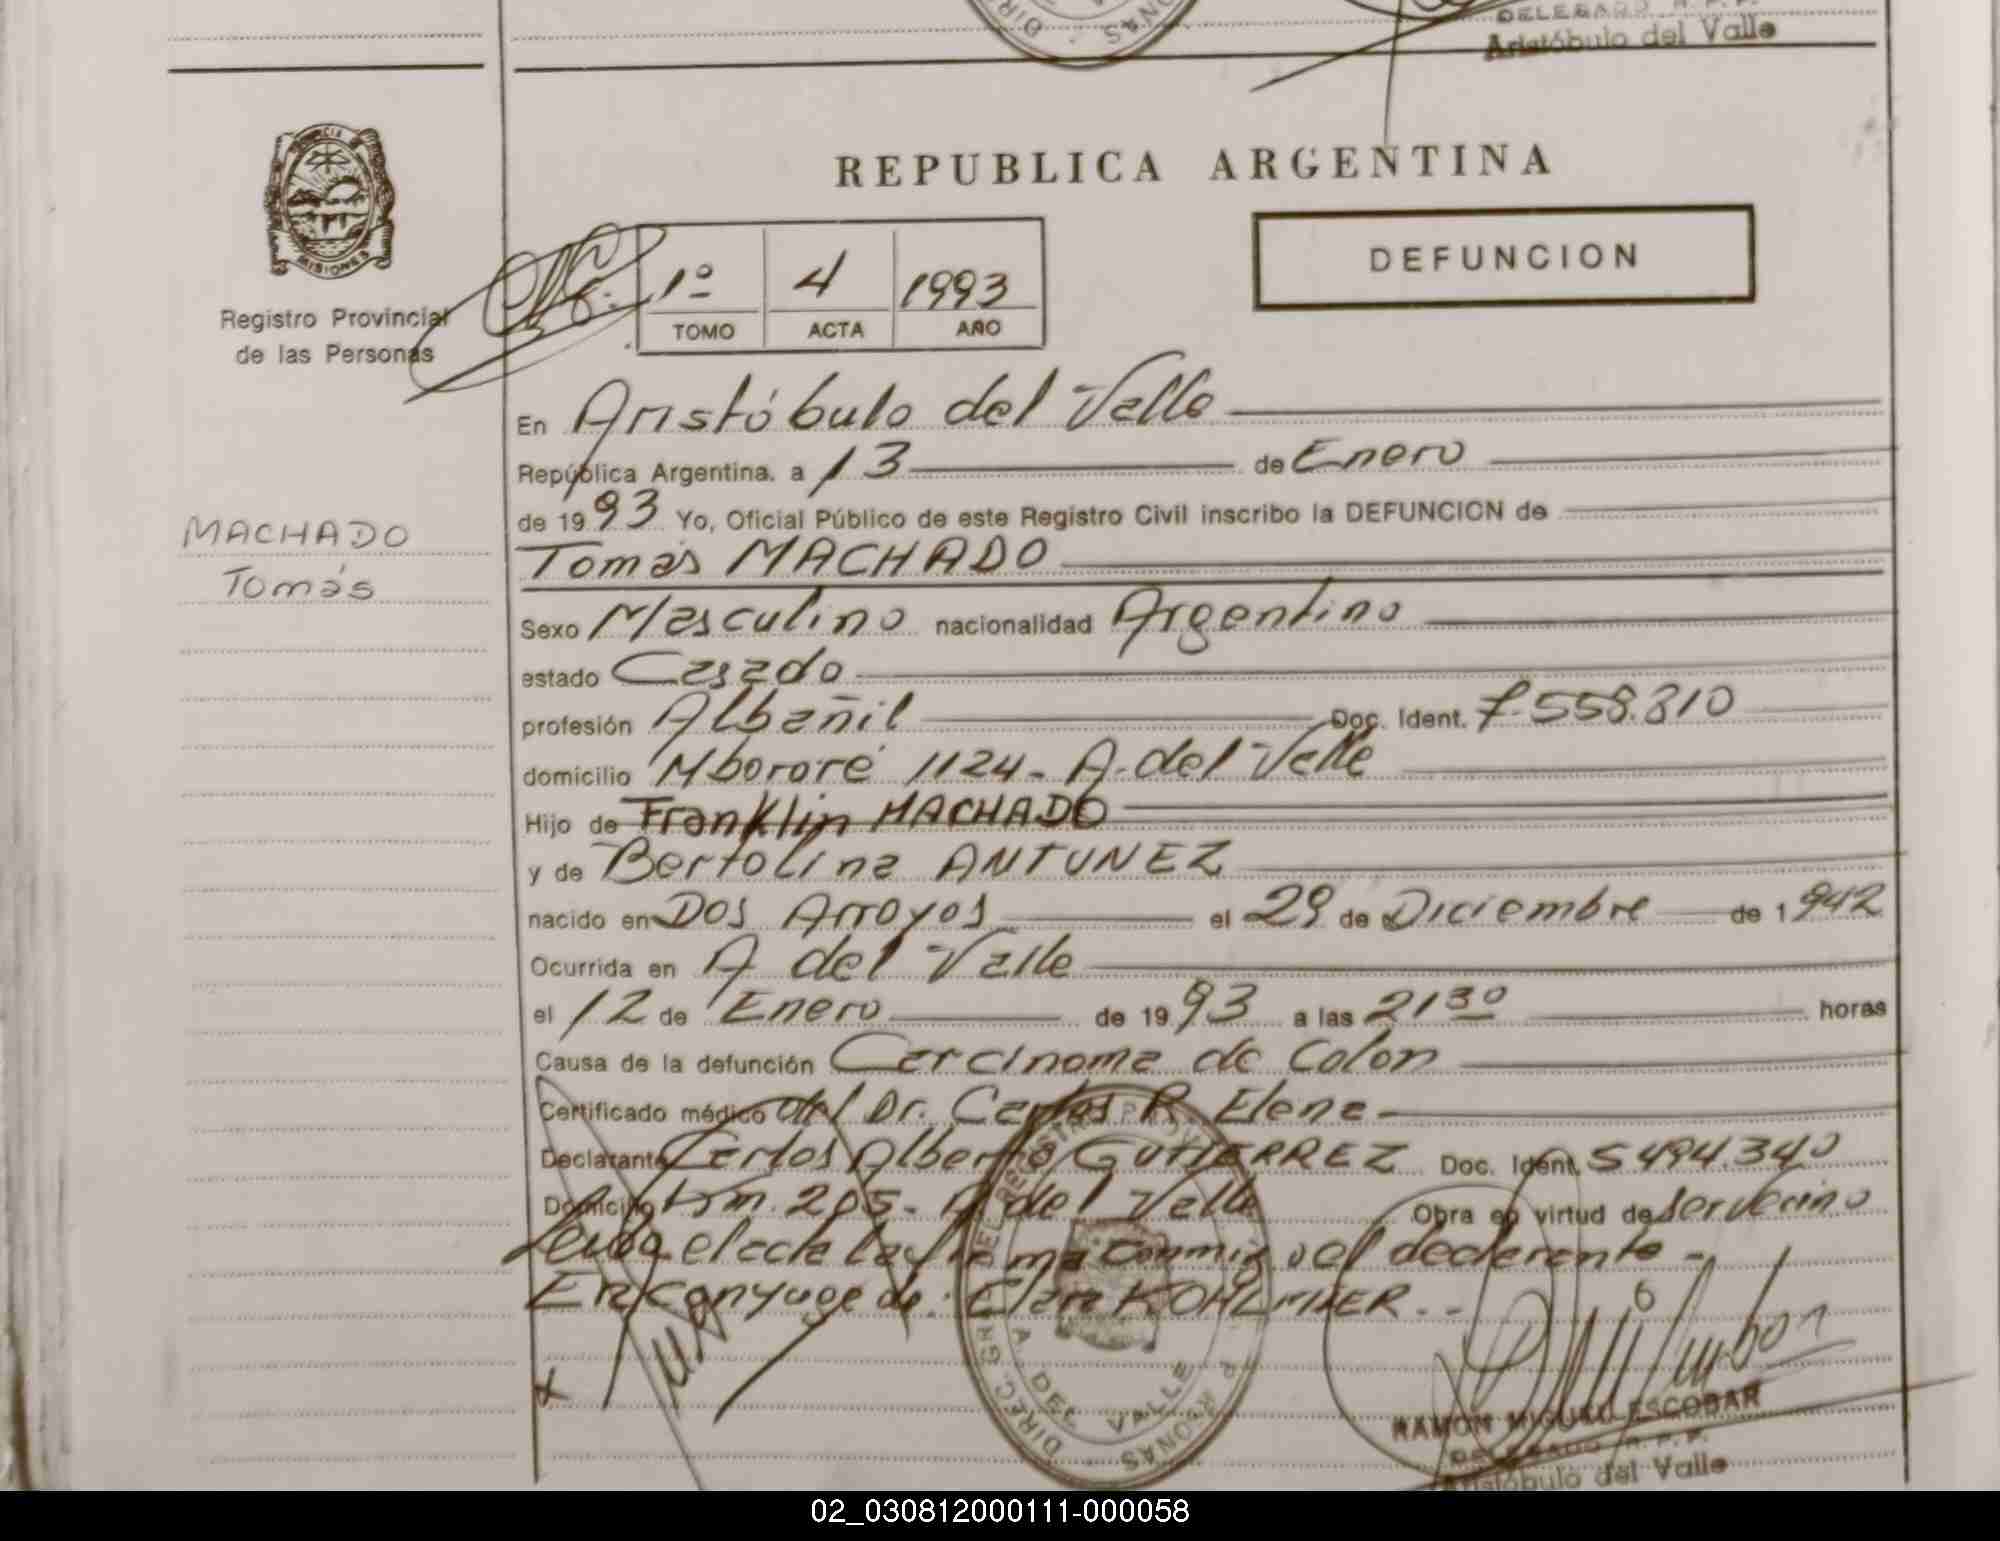 DELEGADO R. P. P.
Aristóbulo del Valle
REPUBLICA ARGENTINA
MISIONES
Registro Provincial
de las Personas
1º 4 1993
TOMO ACTA AÑO
DEFUNCION
En Aristóbulo del Valle
República Argentina, a 13 de Enero
de 1993 Yo, Oficial Público de este Registro Civil inscribo la DEFUNCION de
MACHADO
Tomás
Tomás MACHADO
Sexo Masculino nacionalidad Argentino
estado Casado
profesión Albañil Doc. Ident. 7.558.310
domicilio Mbororé 1124- A. del Valle
Hijo de Franklin MACHADO
y de Bertolina ANTUNEZ
nacido en Dos Arroyos el 29 de Diciembre de 1942
Ocurrida en A del Valle
el 12 de Enero de 1993 a las 21 30 horas
Causa de la defunción Carcinoma de Colon
Certificado médico del Dr. Carlos R. Elena-
Declarante Carlos Alberto GUTIERREZ Doc. Ident. 5494.340
Domicilio Km. 205- A del Valle Obra en virtud de ser vecino
el acta la firma conmigo el declarante-
Era conyuge de: Clara
DIREC. GRAL. DEL REGISTRO PROV. PERSONAS
A. DEL VALLE
RAMON MIGUEL ESCOBAR
DELEGADO R. P. P.
Aristóbulo del Valle
02_030812000111-000058